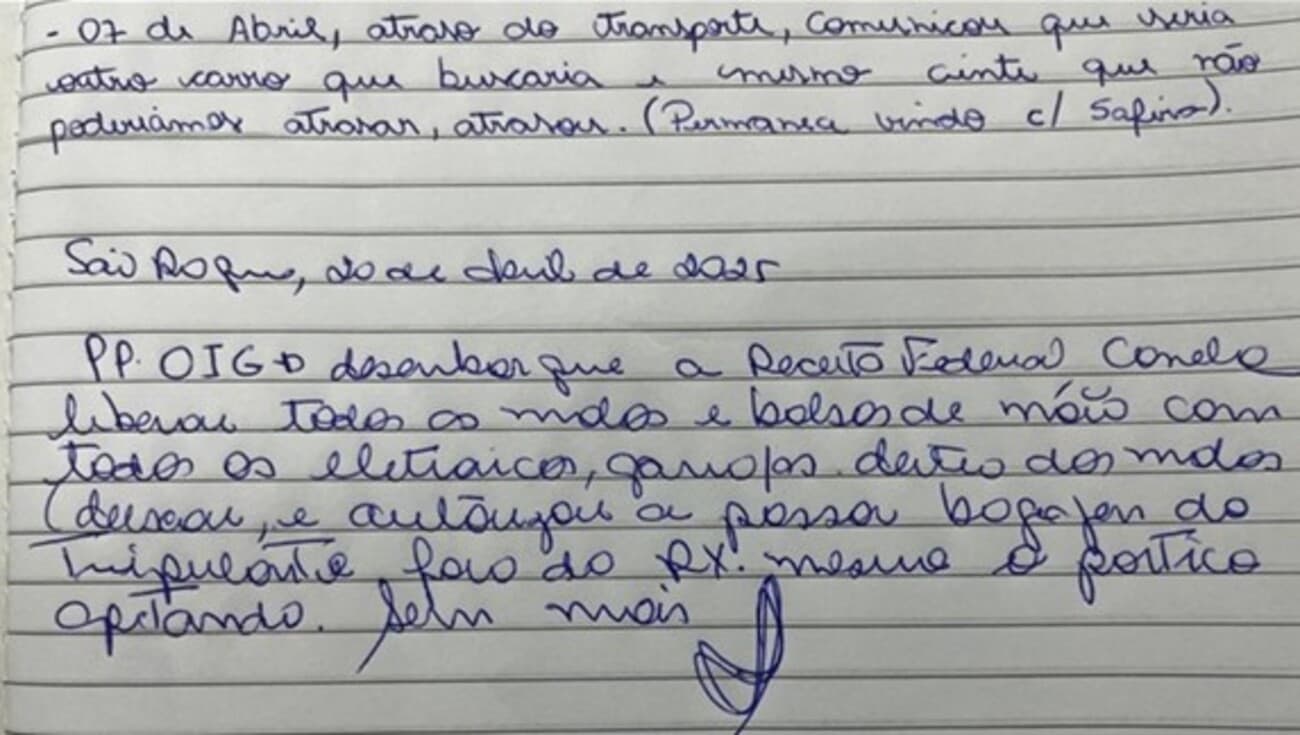 - 07 de Abril, atraso do transporte, comunicou que seria
outro carro que buscaria e mesmo ciente que não
poderiamos atrasar, atrasou. (Permanza vindo c/ Safira).
São Roque, 20 de abril de 2025
PP. OIGD desenbarque a Receita Federal
liberou todos os malas e bolsas de mão com
todos os eletraicos, garrafas dentro dos malas
(deixou, e autorizou a passar bagajen do
tripulante fora do RX. mesmo o portico
apitando. Sem mais